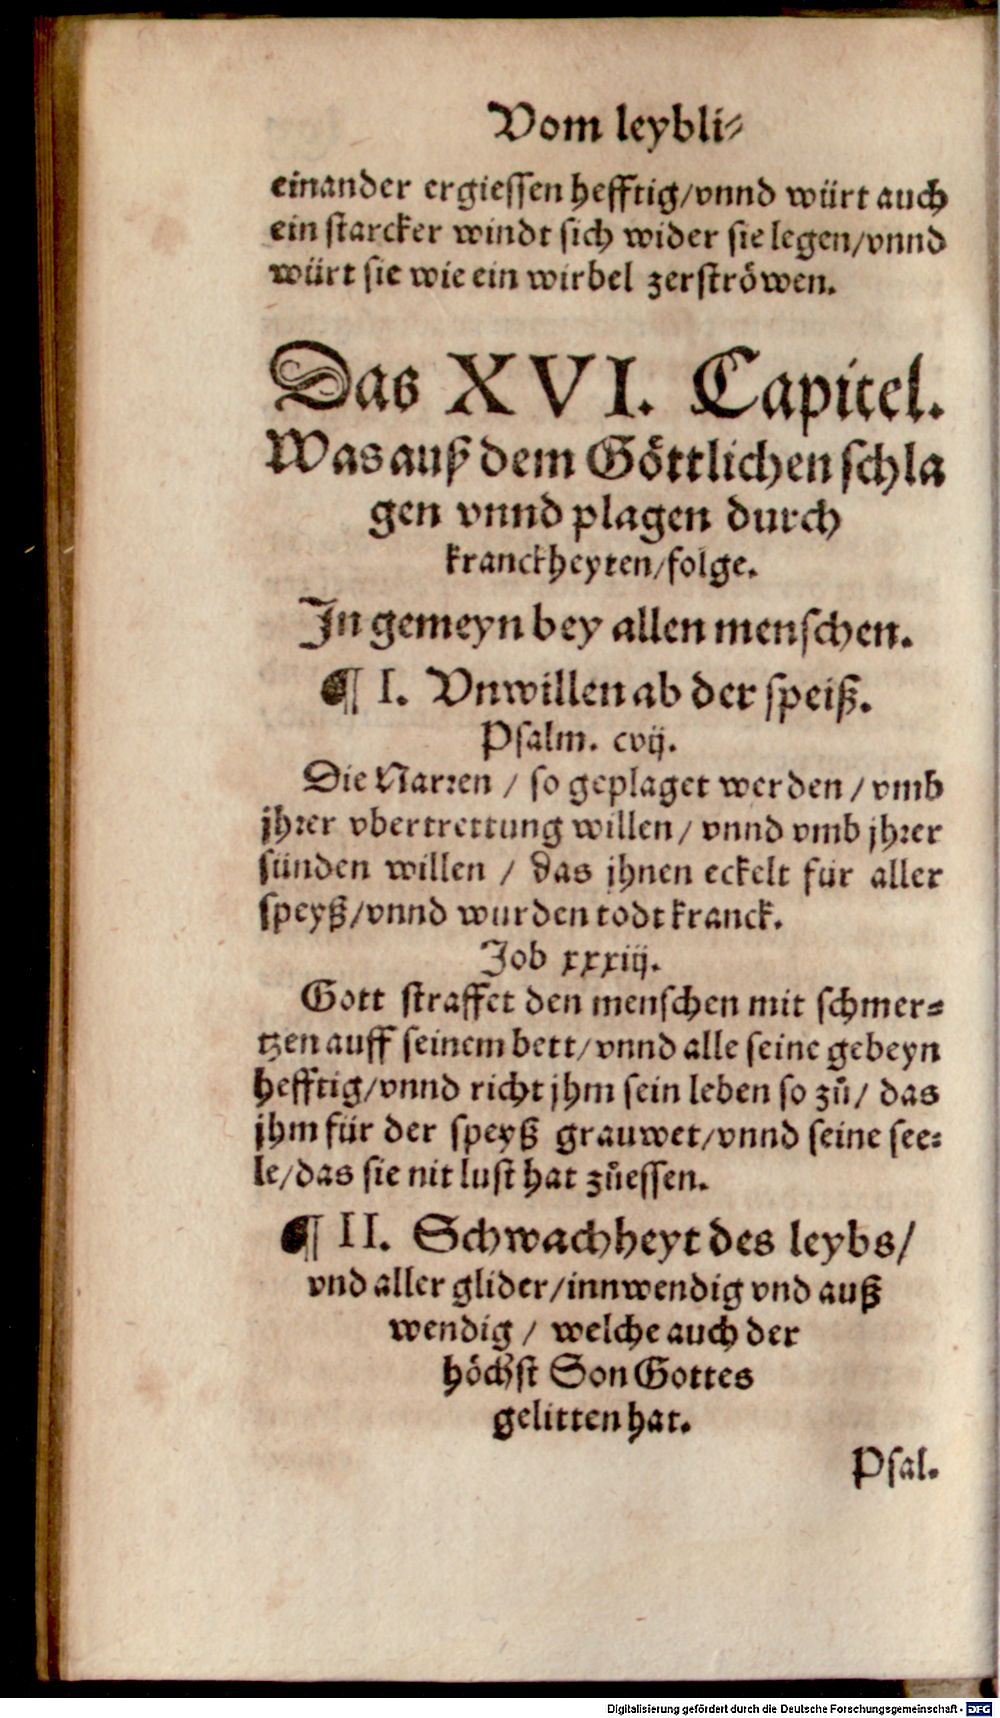 Vom leybli⸗
einander ergiessen hefftig/vnnd würt auch
ein starcker windt sich wider sie legen/vnnd
würt sie wie ein wirbel zerströwen.
Das XVI. Capitel.
Was auß dem Göttlichen schla
gen vnnd plagen durch
kranckheyten/folge.
In gemeyn bey allen menschen.
¶ I. Vnwillen ab der speiß.
Psalm. cvij.
Die Narren / so geplaget werden / vmb
jhrer vbertrettung willen / vnnd vmb jhrer
sünden willen / das jhnen eckelt für aller
speyß/vnnd wurden todt kranck.
Job xxxiij.
Gott straffet den menschen mit schmer⸗
tzen auff seinem bett/vnnd alle seine gebeyn
hefftig/vnnd richt jhm sein leben so zů/ das
jhm für der speyß grauwet/vnnd seine see⸗
le/das sie nit lust hat zůessen.
¶ II. Schwachheyt des leybs/
vnd aller glider/innwendig vnd auß
wendig / welche auch der
höchst Son Gottes
gelitten hat.
Psal.
Digitalisierung gefördert durch die Deutsche Forschungsgemeinschaft - DFG